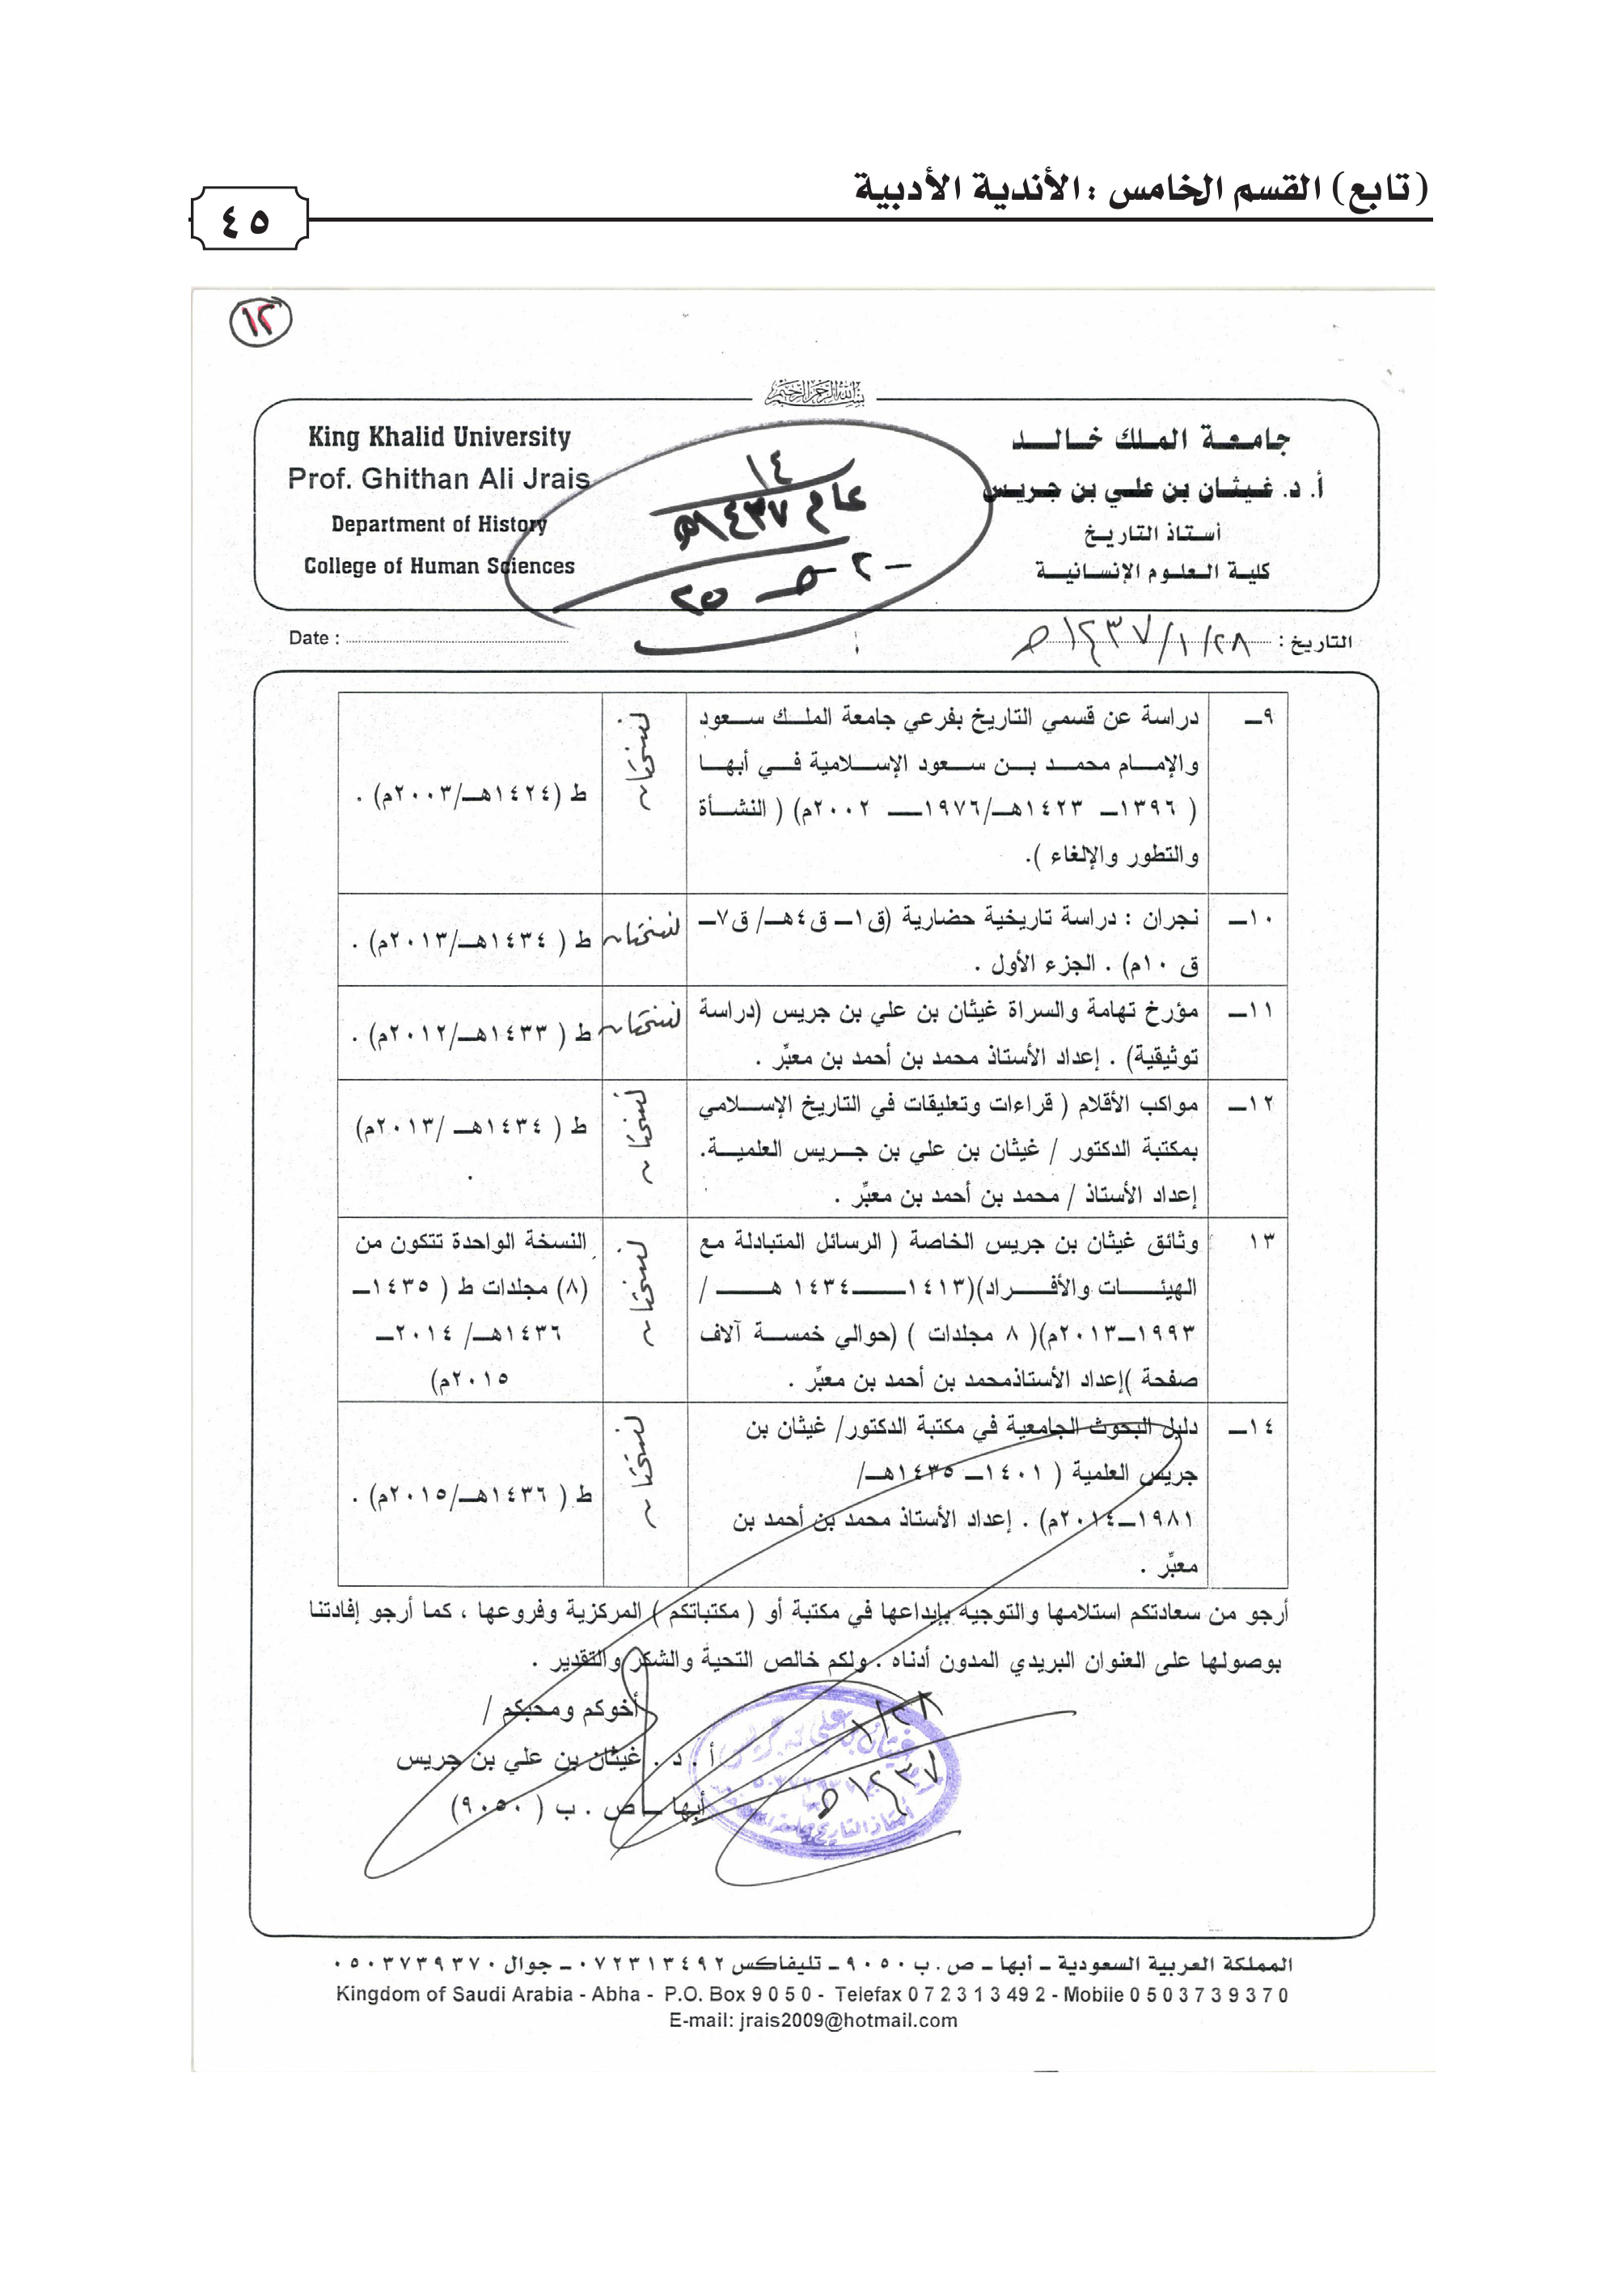 (تابع) القسم الخامس : الأندية الأدبية
٤٥
١٢
جامعة الملك خالد
أ. د. غيثان بن علي بن جريس
أستاذ التاريخ
كلية العلوم الإنسانية
King Khalid University
Prof. Ghithan Ali Jrais
Department of History
College of Human Sciences
١٤
عام ١٤٣٧هـ
التاريخ : ١٤٣٧/١/٢٨هـ
Date :
٩ــ
دراسة عن قسمي التاريخ بفرعي جامعة الملك سعود
والإمام محمد بن سعود الإسلامية في أبها
( ١٣٩٦ــ ١٤٢٣هـ/١٩٧٦ــ ٢٠٠٢م) ( النشأة
والتطور والإلغاء ).
نسختان
ط (١٤٢٤هـ/٢٠٠٣م) .
١٠ــ
نجران : دراسة تاريخية حضارية (ق١ــ ق٤هـ/ ق٧ــ
ق ١٠م) . الجزء الأول .
نسختان
ط ( ١٤٣٤هـ/٢٠١٣م) .
١١ــ
مؤرخ تهامة والسراة غيثان بن علي بن جريس (دراسة
توثيقية) . إعداد الأستاذ محمد بن أحمد بن معبِّر .
نسختان
ط ( ١٤٣٣هـ/٢٠١٢م) .
١٢ــ
مواكب الأقلام ( قراءات وتعليقات في التاريخ الإسلامي
بمكتبة الدكتور / غيثان بن علي بن جريس العلمية.
إعداد الأستاذ / محمد بن أحمد بن معبِّر .
نسختان
ط ( ١٤٣٤هـ /٢٠١٣م)
.
١٣
وثائق غيثان بن جريس الخاصة ( الرسائل المتبادلة مع
الهيئات والأفراد)(١٤١٣ــ١٤٣٤ هـ /
١٩٩٣ــ٢٠١٣م)( ٨ مجلدات ) (حوالي خمسة آلاف
صفحة )إعداد الأستاذمحمد بن أحمد بن معبِّر .
نسختان
النسخة الواحدة تتكون من
(٨) مجلدات ط ( ١٤٣٥ــ
١٤٣٦هـ/ ٢٠١٤ــ
٢٠١٥م)
١٤ــ
دليل البحوث الجامعية في مكتبة الدكتور/ غيثان بن
جريس العلمية ( ١٤٠١ــ ١٤٣٥هـ/
١٩٨١ــ٢٠١٤م) . إعداد الأستاذ محمد بن أحمد بن
معبِّر .
نسختان
ط ( ١٤٣٦هـ/٢٠١٥م) .
أرجو من سعادتكم استلامها والتوجيه بإيداعها في مكتبة أو ( مكتباتكم ) المركزية وفروعها ، كما أرجو إفادتنا
بوصولها على العنوان البريدي المدون أدناه . ولكم خالص التحية والشكر والتقدير .
أخوكم ومحبكم /
أ . د . غيثان بن علي بن جريس
أبها ــ ص . ب ( ٩٠٥٠)
المملكة العربية السعودية ـ أبها ـ ص . ب ٩٠٥٠ ـ تليفاكس ٠٧٢٣١٣٤٩٢ ـ جوال ٠٥٠٣٧٣٩٣٧٠
Kingdom of Saudi Arabia - Abha - P.O. Box 9 0 5 0 - Telefax 0 7 2 3 1 3 49 2 - Mobile 0 5 0 3 7 3 9 3 7 0
E-mail: jrais2009@hotmail.com